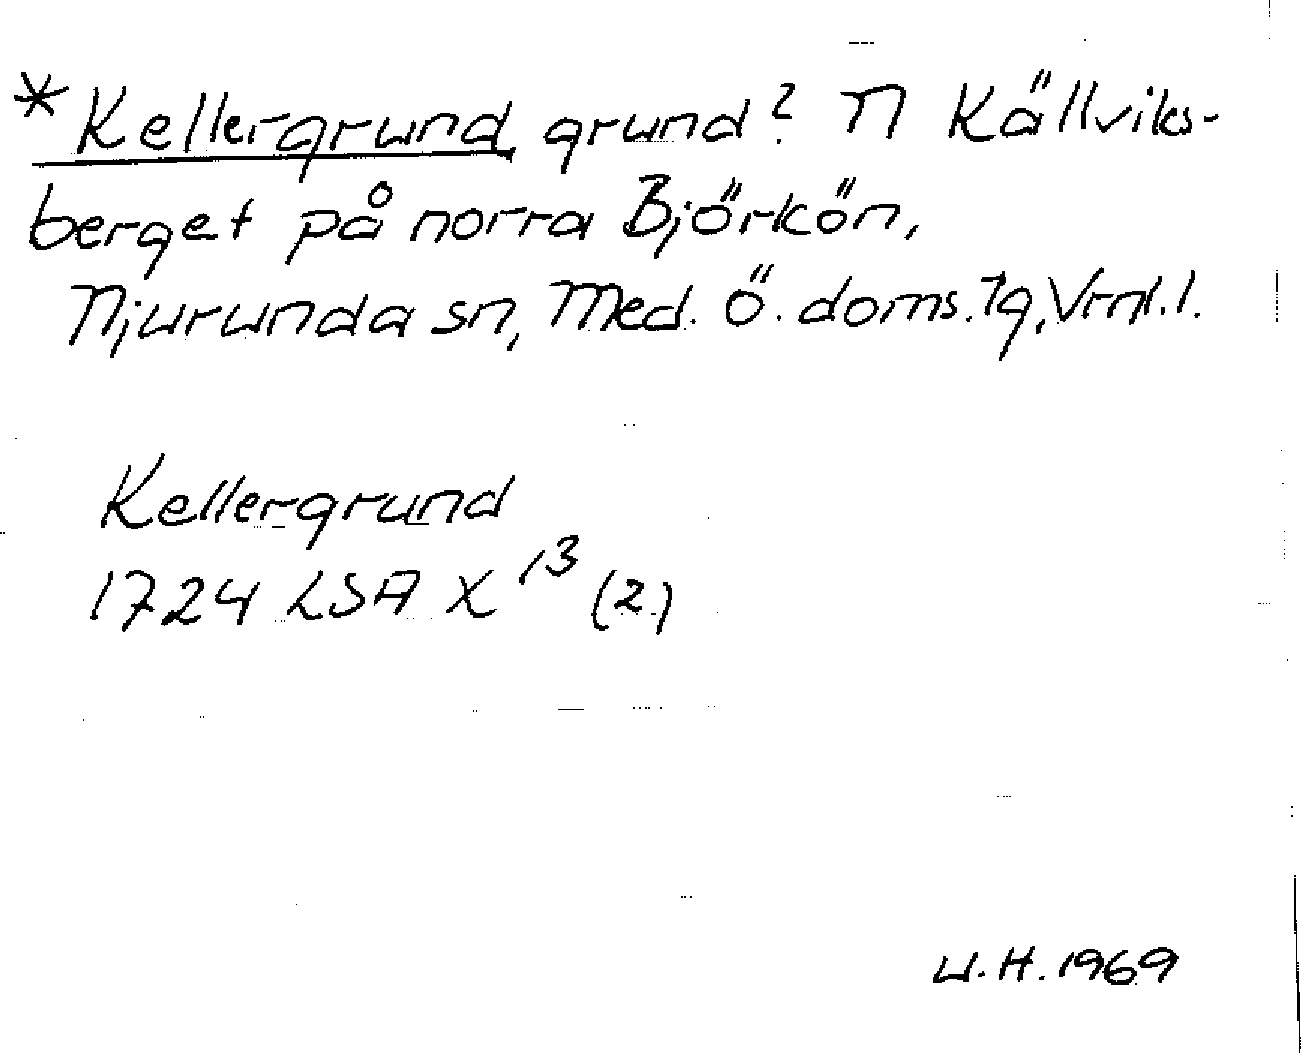 *Kellergrund, grund? N Källviks-
berget på norra Björkön,
Njurunda sn, Med. Ö. doms.tg, Vrnl.l.
Kellergrund
1724 LSA X 13 (2)
U.H. 1969